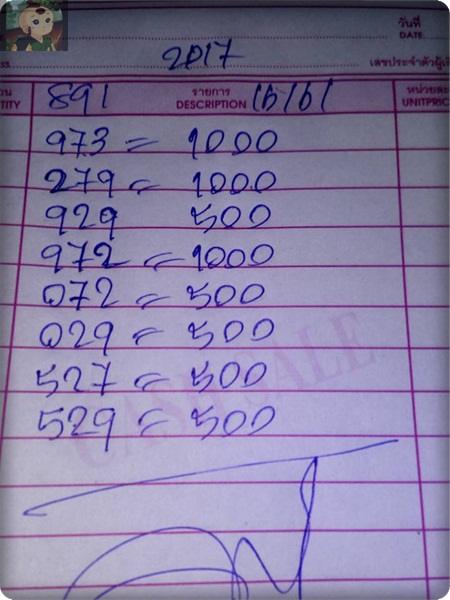 วันที่
DATE
2017
เลขประจำตัวผู้เ
891 รายการ 16/6/
TITY DESCRIPTION UNITPRIC
973 = 1000
279 = 1000
929 500
972 = 1000
072 = 500
029 = 500
527 = 500
529 = 500
CASH SALE